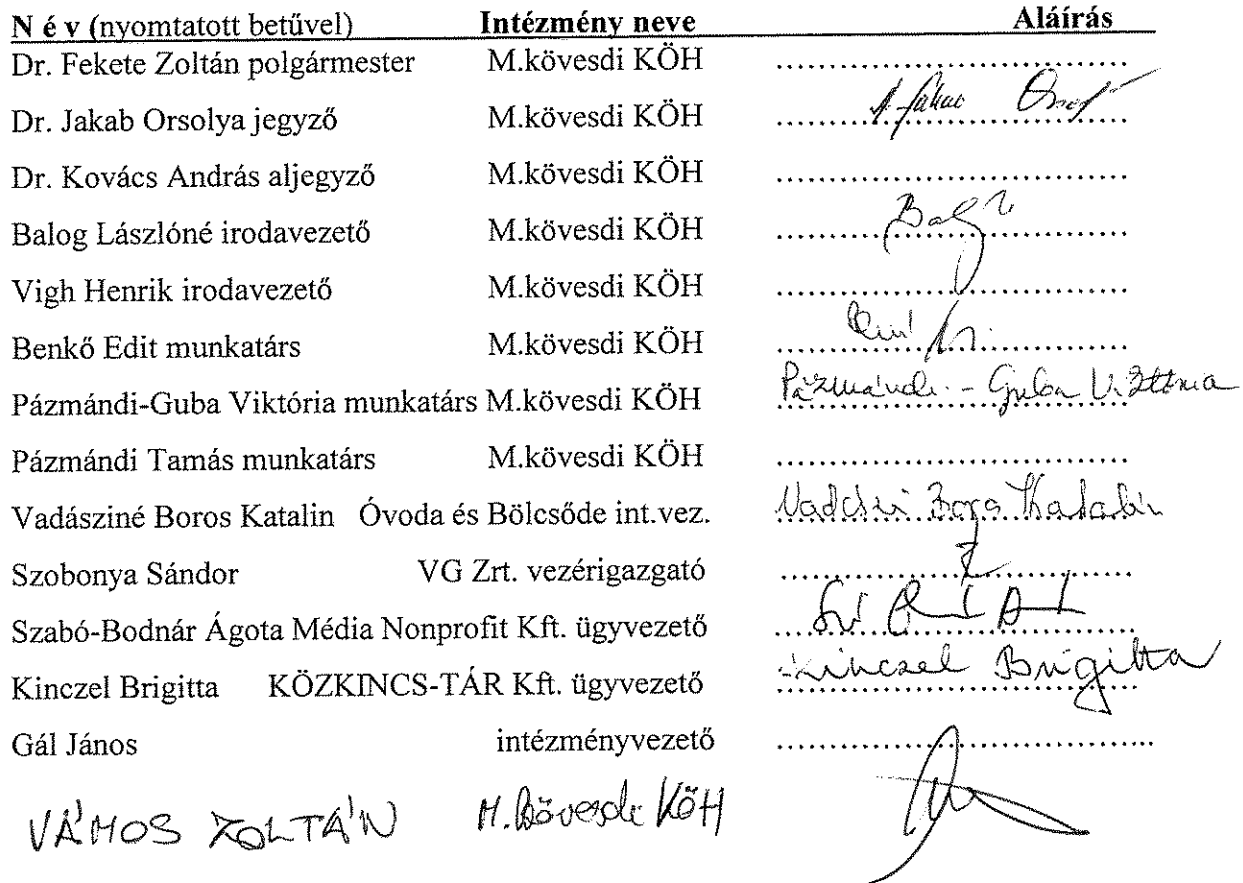 N é v (nyomtatott betűvel) Intézmény neve Aláírás
Dr. Fekete Zoltán polgármester M.kövesdi KÖH ..............................
Dr. Jakab Orsolya jegyző M.kövesdi KÖH ..............................
Dr. Kovács András aljegyző M.kövesdi KÖH ..............................
Balog Lászlóné irodavezető M.kövesdi KÖH ..............................
Vigh Henrik irodavezető M.kövesdi KÖH ..............................
Benkő Edit munkatárs M.kövesdi KÖH ..............................
Pázmándi-Guba Viktória munkatárs M.kövesdi KÖH Pázmándi-Guba Viktória
Pázmándi Tamás munkatárs M.kövesdi KÖH ..............................
Vadásziné Boros Katalin Óvoda és Bölcsőde int.vez. Vadásziné Boros Katalin
Szobonya Sándor VG Zrt. vezérigazgató ..............................
Szabó-Bodnár Ágota Média Nonprofit Kft. ügyvezető ..............................
Kinczel Brigitta KÖZKINCS-TÁR Kft. ügyvezető Kinczel Brigitta
Gál János intézményvezető ..............................
VÁMOS ZOLTÁN M.kövesdi KÖH